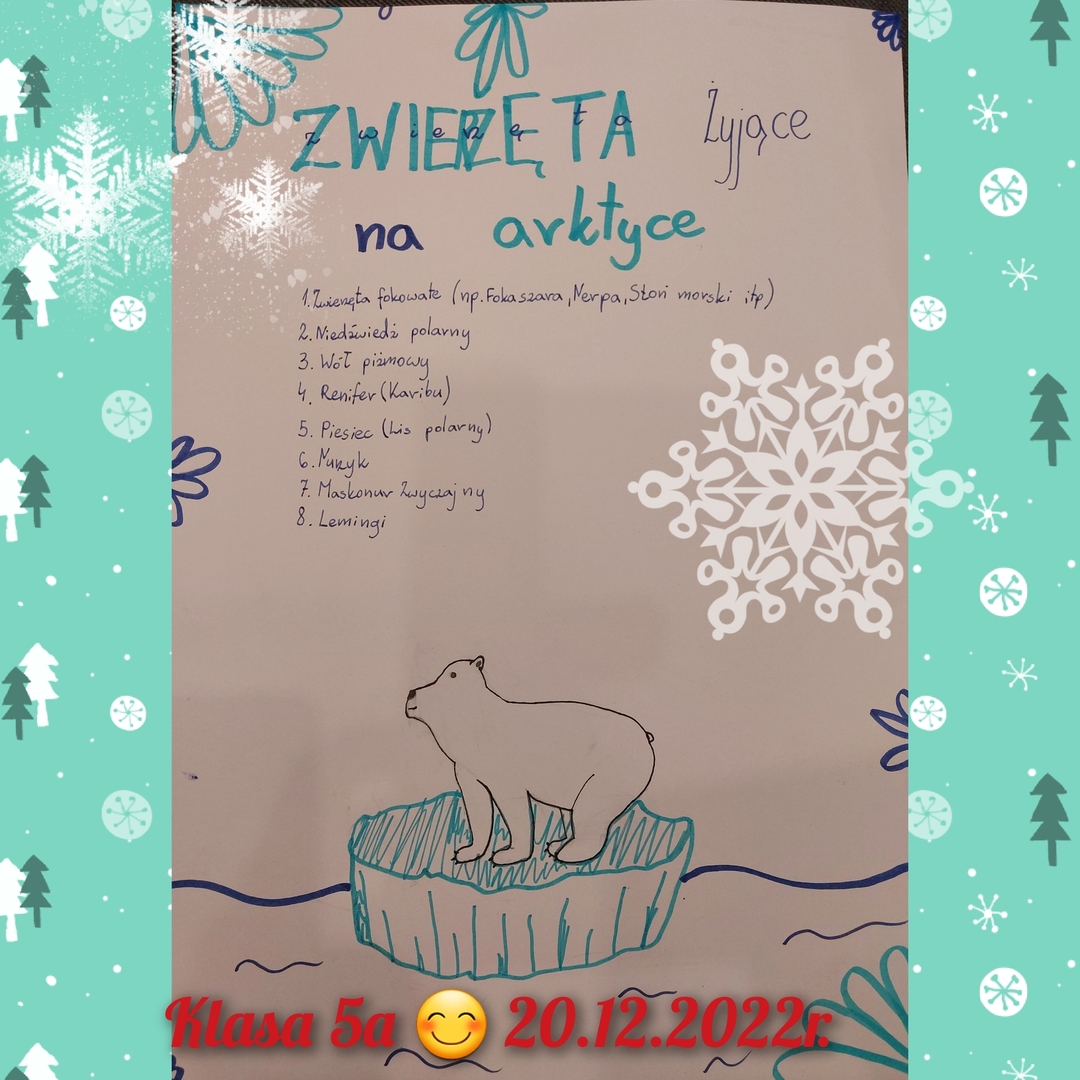 ZWIERZĘTA żyjące
na arktyce
1. Zwierzęta fokowate (np. Foka szara, Nerpa, Słoń morski itp)
2. Niedźwiedź polarny
3. Wół piżmowy
4. Renifer (Karibu)
5. Piesiec (Lis polarny)
6. Nurzyk
7. Maskonur Zwyczajny
8. Lemingi
Klasa 5a 😊 20.12.2022r.